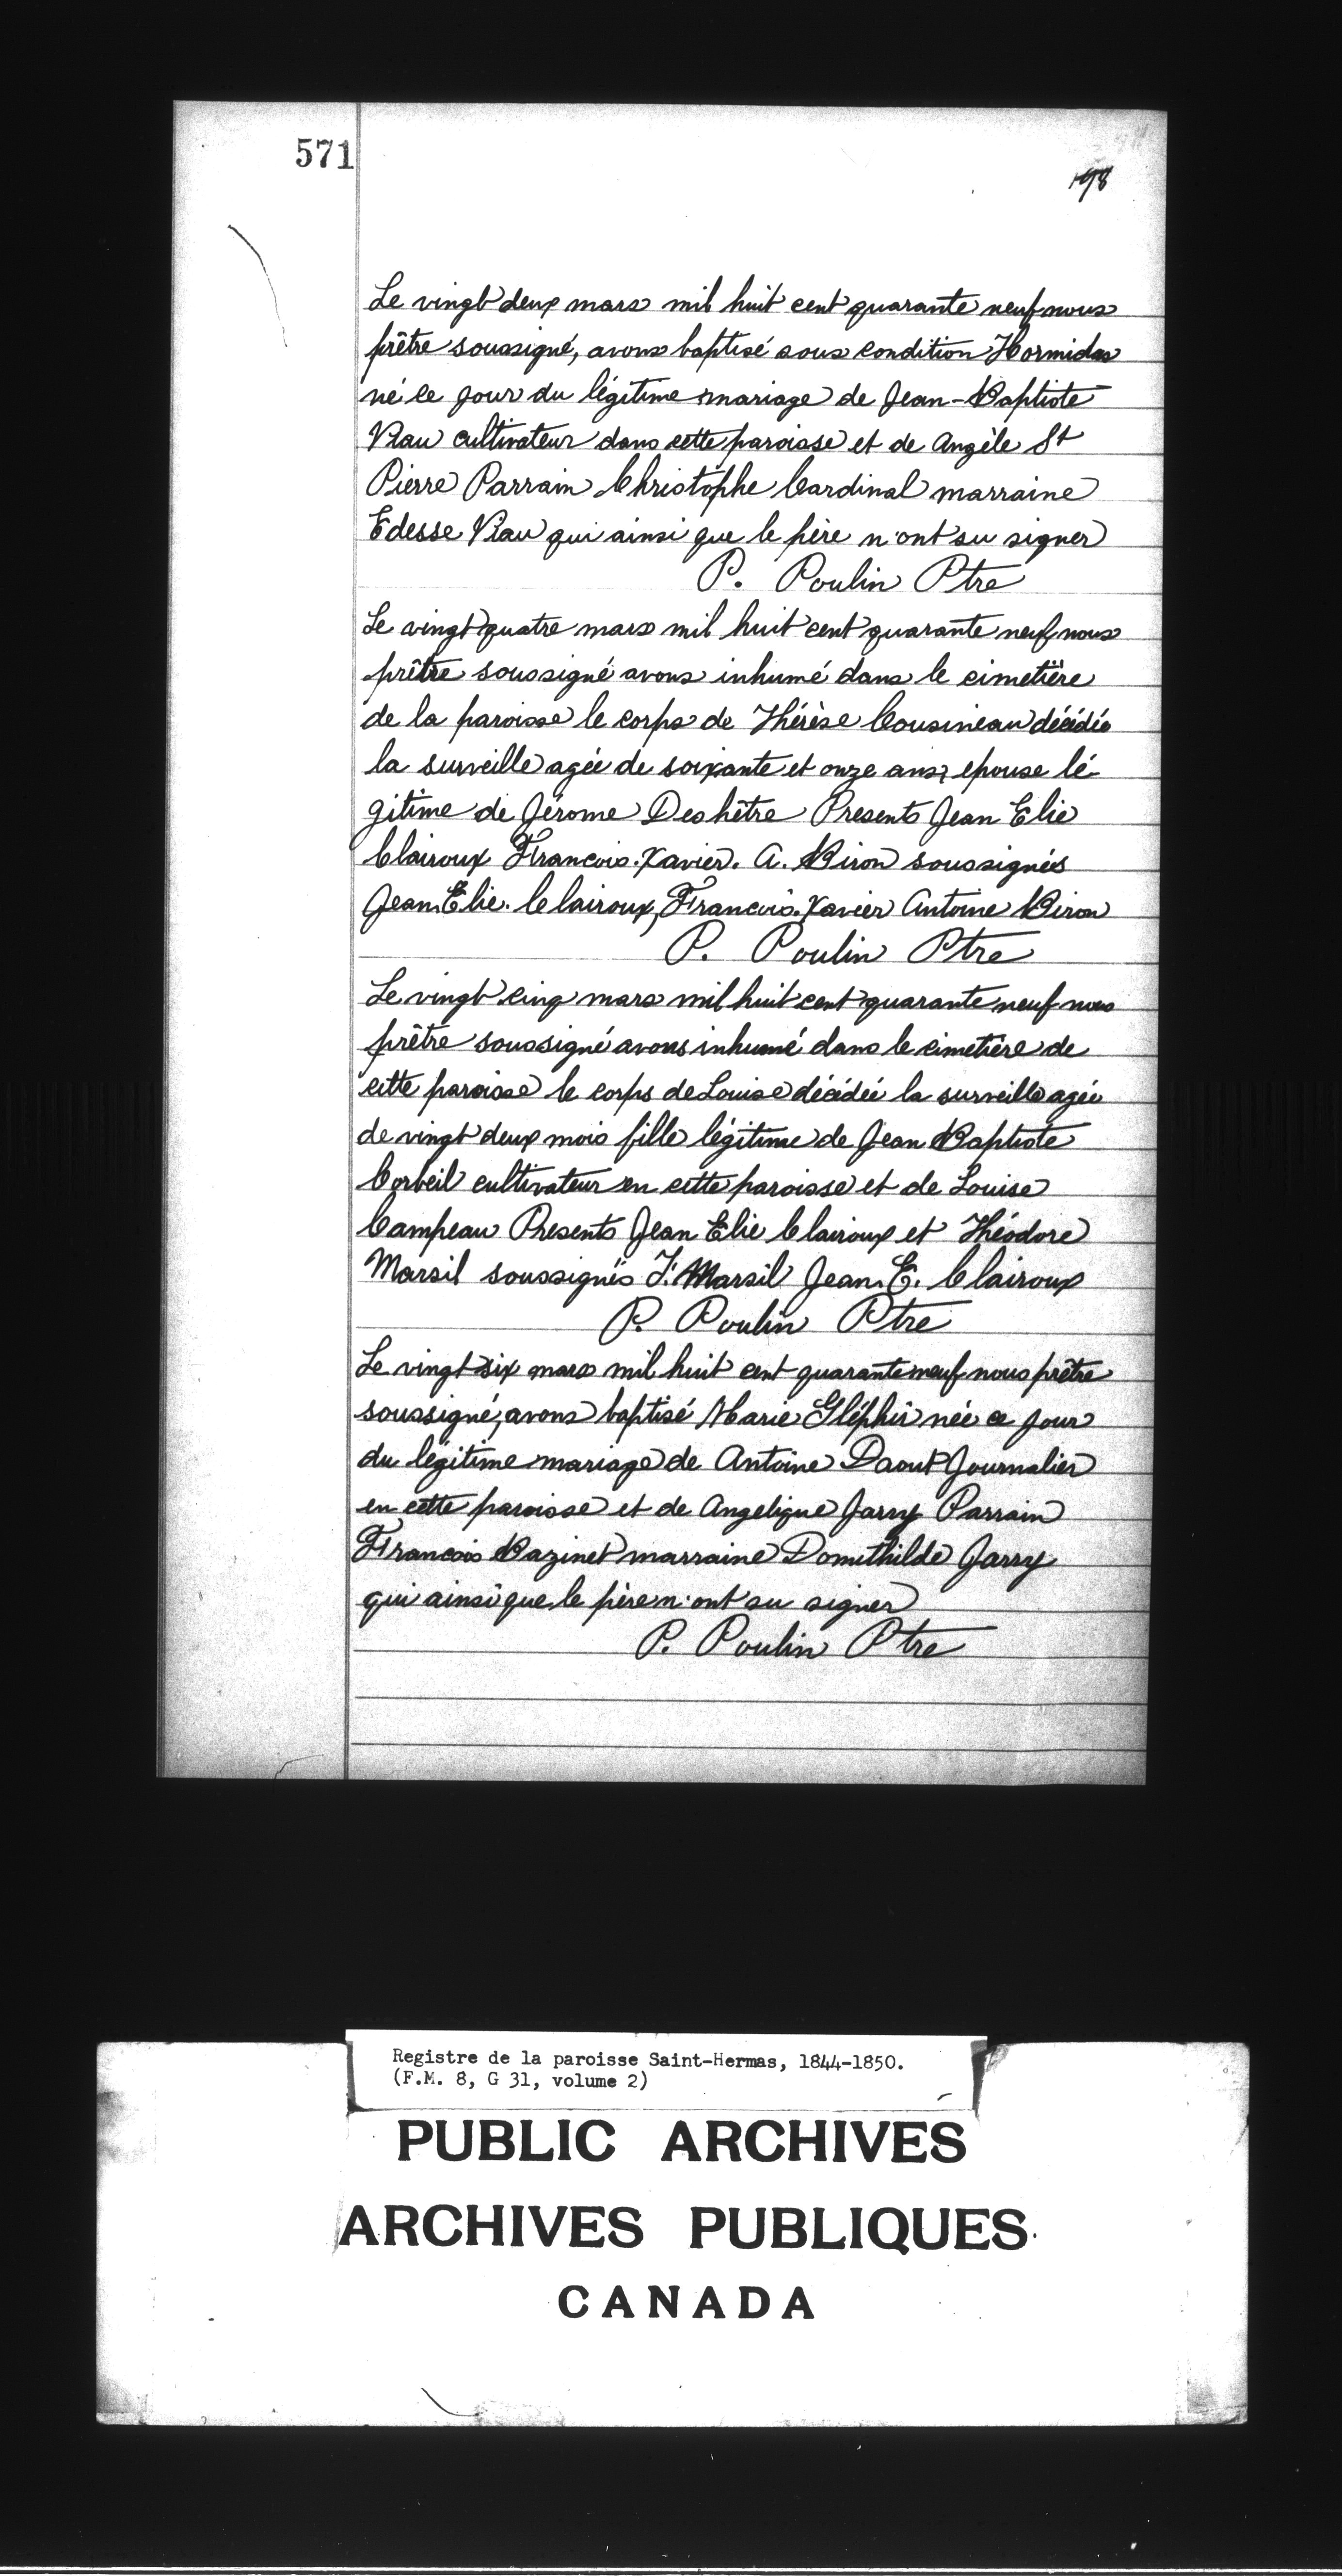 571
198
Le vingt deux mars mil huit cent quarante neuf nous
prêtre soussigné, avons baptisé sous condition Hormidas
né ce jour du légitime mariage de Jean-Baptiste
Viau cultivateur dans cette paroisse et de Angèle St
Pierre Parrain Christophe Cardinal marraine
Edesse Viau qui ainsi que le père n'ont su signer
P. Poulin Ptre
Le vingt quatre mars mil huit cent quarante neuf nous
prêtre soussigné avons inhumé dans le cimetière
de la paroisse le corps de Thérèse Cousineau décédée
la surveille agée de soixante et onze ans, epouse lé-
gitime de Jérome Deshêtre Presents Jean Elie
Clairoux Francois. Xavier. A. Biron soussignés
Jean. Elie. Clairoux, Francois. Xavier Antoine Biron
P. Poulin Ptre
Le vingt cinq mars mil huit cent quarante neuf nous
prêtre soussigné avons inhumé dans le cimetière de
cette paroisse le corps de Louise décédée la surveille agée
de vingt deux mois fille légitime de Jean Baptiste
Corbeil cultivateur en cette paroisse et de Louise
Campeau Presents Jean Elie Clairoux et Théodore
Marsil soussignés T. Marsil Jean. E. Clairoux
P. Poulin Ptre
Le vingt six mars mil huit cent quarante neuf nous prêtre
soussigné, avons baptisé Marie Gléphir née ce jour
du légitime mariage de Antoine Daout Journalier
en cette paroisse et de Angelique Jarry Parrain
Francois Bazinet marraine Domithilde Jarry
qui ainsi que le père n'ont su signer
P. Poulin Ptre
Registre de la paroisse Saint-Hermas, 1844-1850.
(F.M. 8, G 31, volume 2)
PUBLIC ARCHIVES
ARCHIVES PUBLIQUES
CANADA